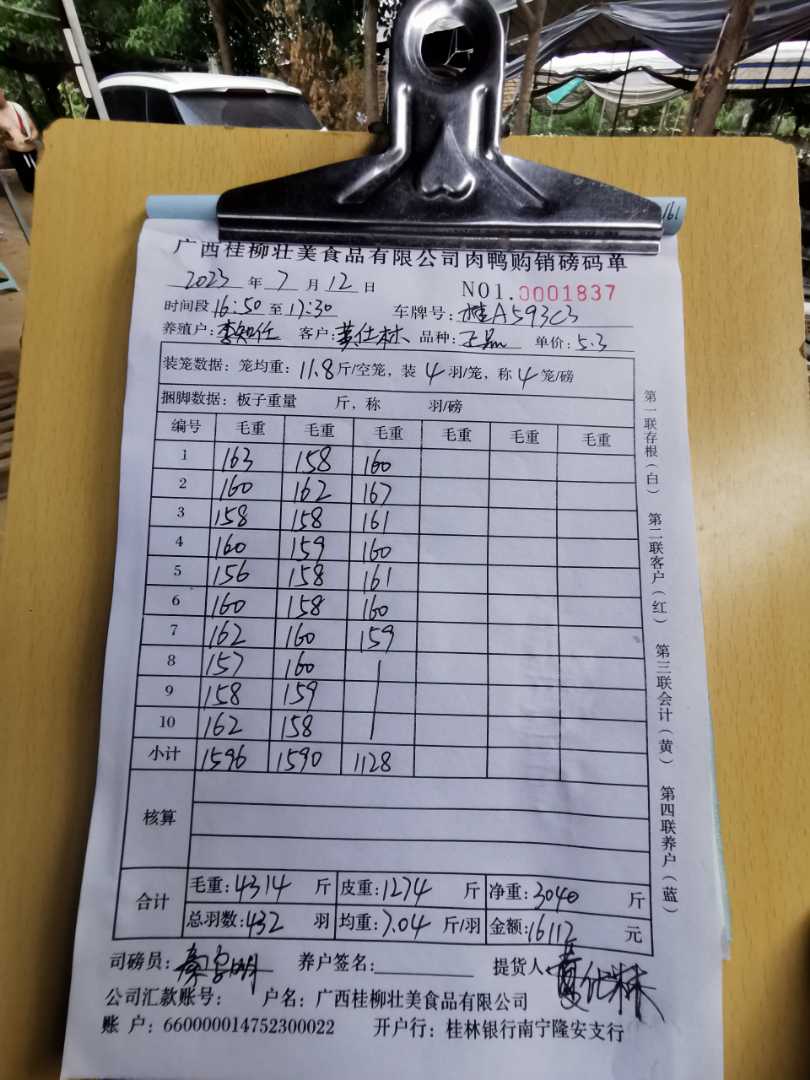 161
广西桂柳壮美食品有限公司肉鸭购销磅码单
2023 年 7 月 12 日 NO1.0001837
时间段 16:50 至 17:30 车牌号: 桂A593C3
养殖户: 李知任 客户: 黄仕林 品种: 单价: 5.3
装笼数据: 笼均重: 11.8 斤/空笼, 装 4 羽/笼, 称 4 笼/磅
捆脚数据: 板子重量 斤, 称 羽/磅
编号 毛重 毛重 毛重 毛重 毛重 毛重
1 163 158 160
2 160 162 167
3 158 158 161
4 160 159 160
5 156 158 161
6 160 158 160
7 162 160 159
8 157 160
9 158 159
10 162 158
小计 1596 1590 1128
核算
合计 毛重: 4314 斤 皮重: 1274 斤 净重: 3040 斤
总羽数: 432 羽 均重: 7.04 斤/羽 金额: 16112 元
司磅员: 养户签名: 提货人 黄仕林
公司汇款账号: 户名: 广西桂柳壮美食品有限公司
账 户: 660000014752300022 开户行: 桂林银行南宁隆安支行
第一联存根(白) 第二联客户(红) 第三联会计(黄) 第四联养户(蓝)